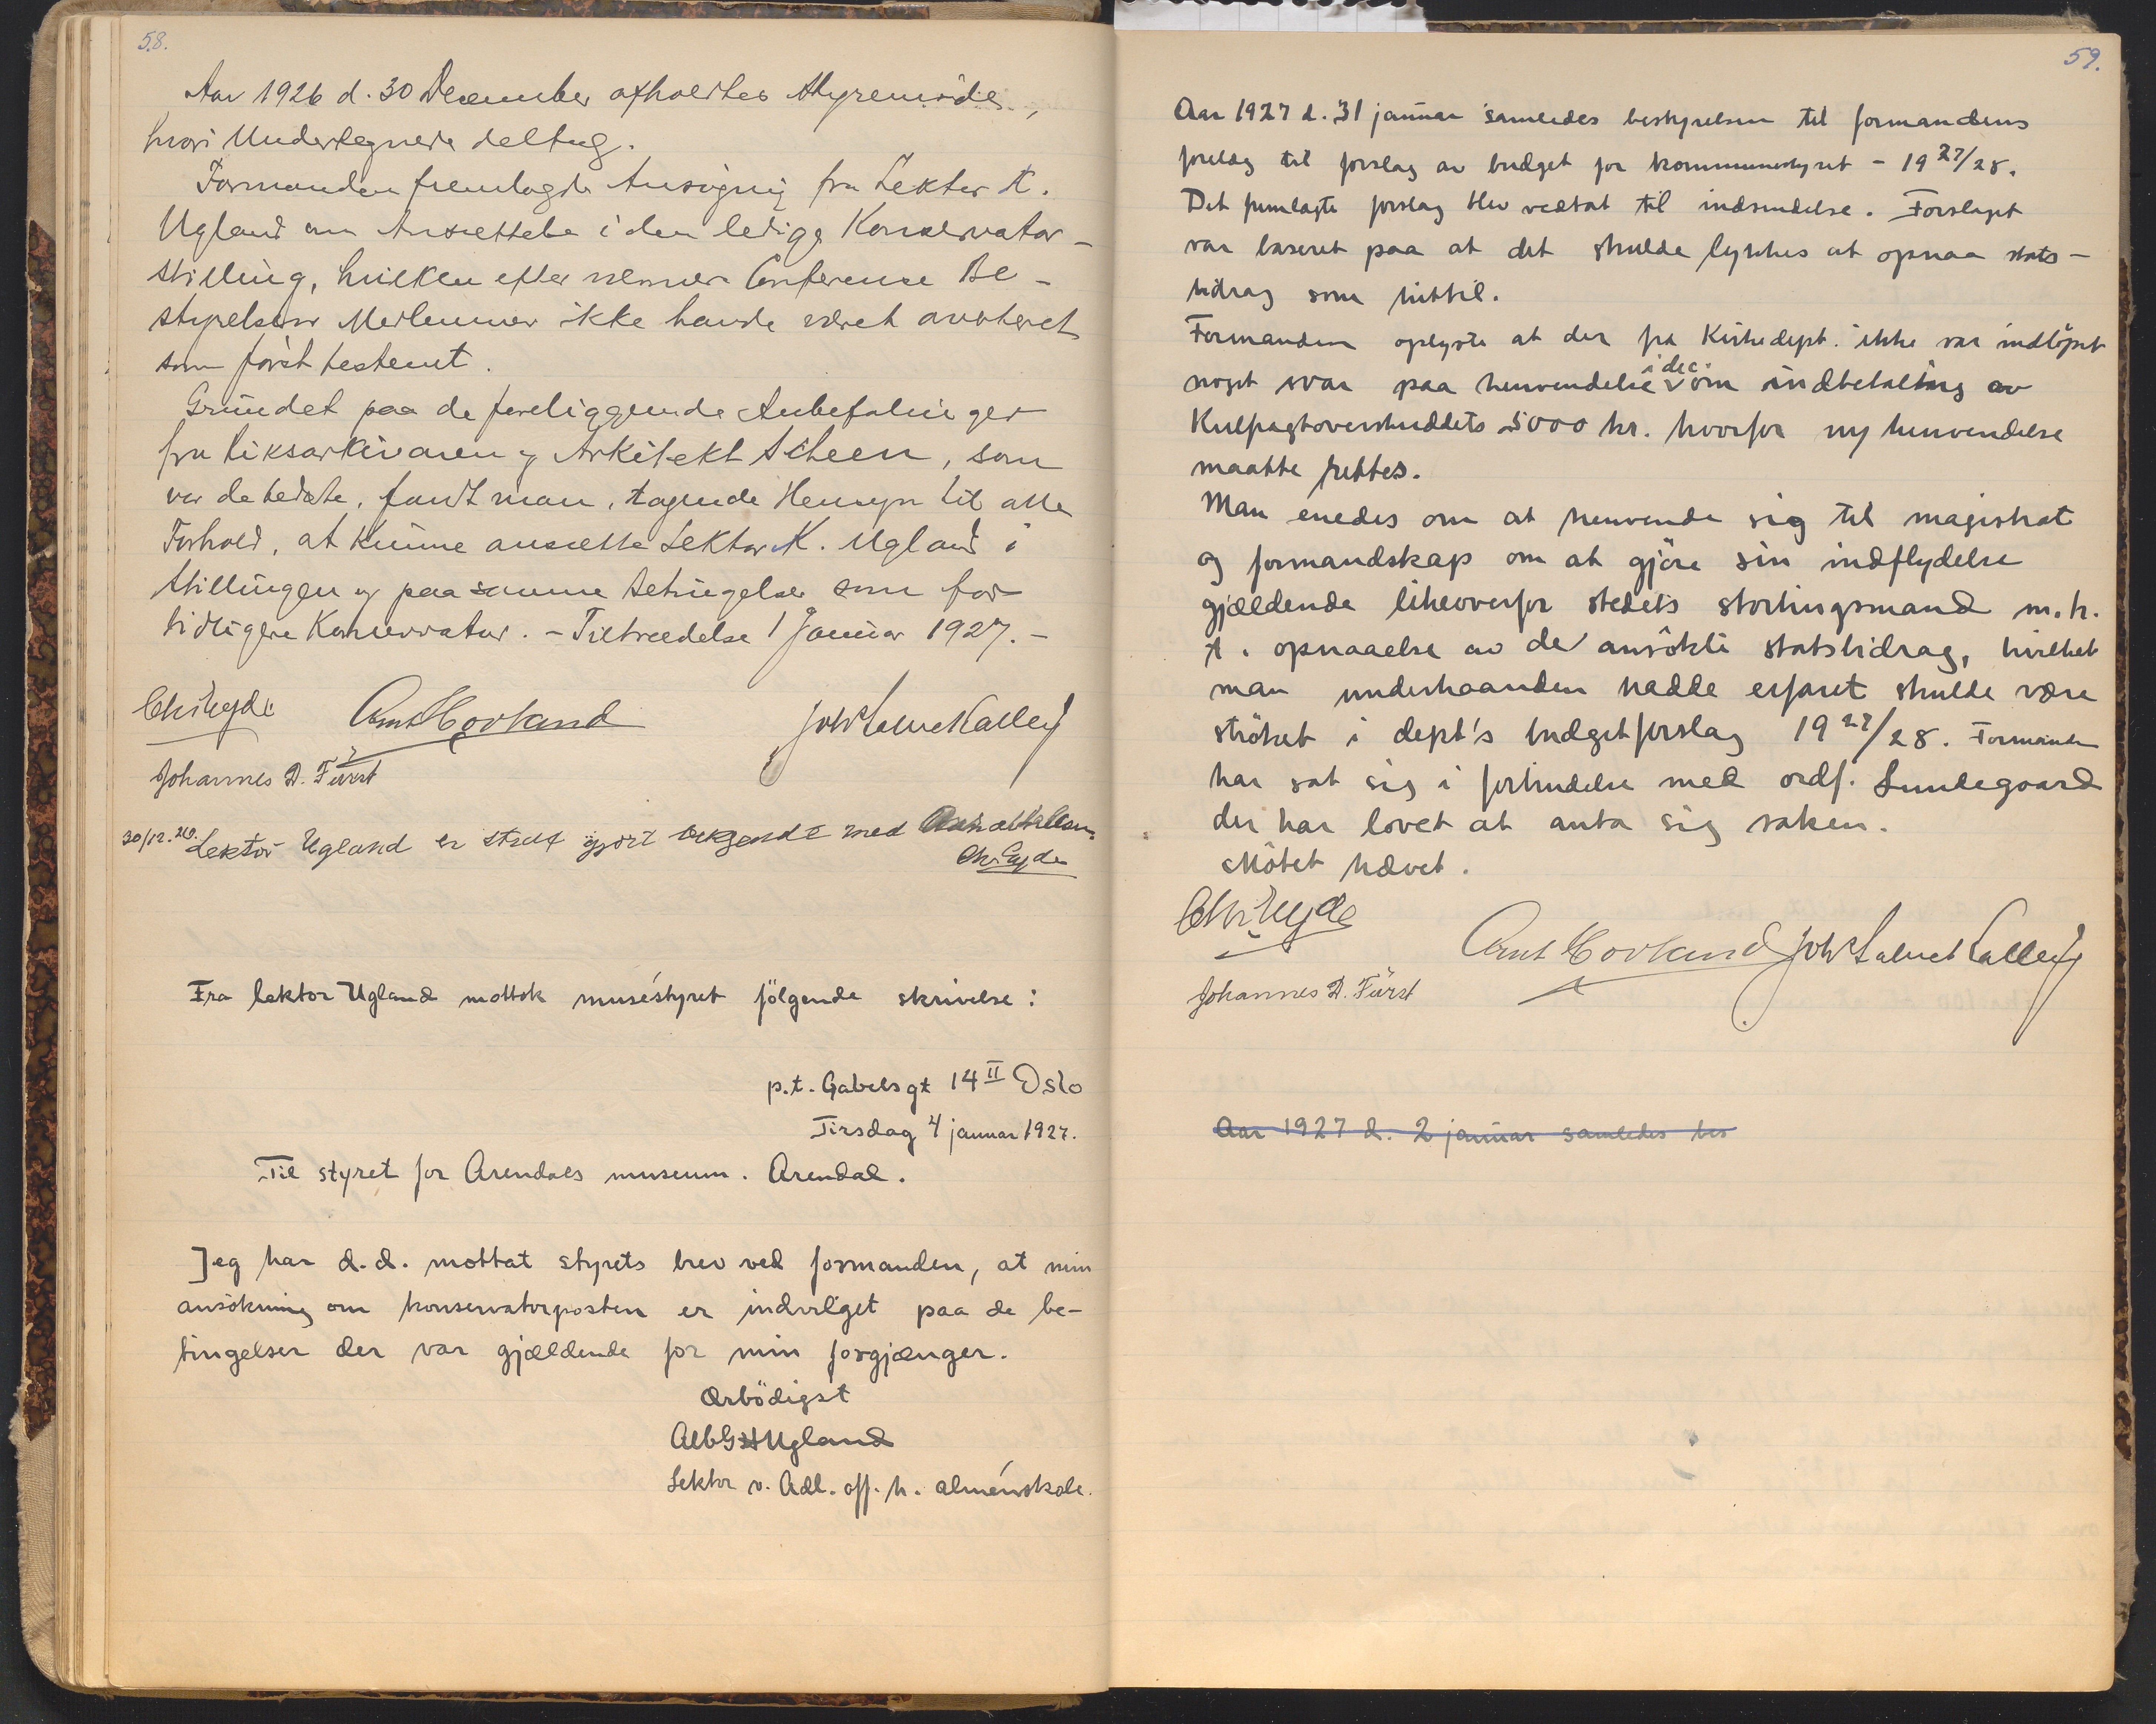 58.
Aar 1926 d. 30 December afholdtes Styremöde,
hvori Undertegnede deltog.
Formanden fremlagde Ansögning fra Lektor K.
Ugland om Ansættelse i den ledige Konservator-
stilling, hvilken efter nermere Conference Be-
styrelsens Medlemmer ikke havde været averteret
som först bestemt.
Grundet paa de foreliggende Anbefalinger
fra Riksarkivaren og Arkitekt Scheen, som
var de bedste, fandt man, tagende Hensyn til alle
Forhold, at kunne ansætte Lektor K. Ugland i
Stillingen og paa samme Betingelser som for
tidligere Konservator. - Tiltrædelse 1 Januar 1927. -
Chr. Eyde Arnt Hovland Joh Salve Kalleij
Johannes D. Fürst
30/12.26. Lektor Ugland er straks gjort bekjendt med
Chr. Eyde
Fra lektor Ugland mottok muséstyret fölgende skrivelse:
p.t. Gabelsgt 14 II Oslo
Tirsdag 4 januar 1927.
Til styret for Arendals museum. Arendal.
Jeg har d.d. mottat styrets brev ved formanden, at min
ansökning om konservatorposten er indvilget paa de be-
tingelser der var gjældende for min forgjænger.
Ærbödigst
Ugland
Lektor v. Adl. off. h. almenskole.
59.
Aar 1927 d. 31 januar samledes bestyrelsen til formandens
forelæg til forslag av budget for kommunestyret - 19 27/28.
Det fremlagte forslag blev vedtat til indsendelse. Forslaget
var baseret paa at det skulde lykkes at opnaa stats-
bidrag som hittil.
Formanden oplyste at der fra Kirkedept. ikke var indlöpet
noget svar paa henvendelse i dec. om indbetaling av
Kulfragtoverskuddets 5000 kr. hvorfor ny henvendelse
maatte rettes.
Man enedes om at henvende sig til magistrat
og formandskap om at gjöre sin indflydelse
gjældende likeoverfor stedets stortingsmand m.h.
t. opnaaelse av de ansökte statsbidrag, hvilket
man underhaanden hadde erfaret skulde være
ströket i dept's budgetforslag 19 27/28. Formanden
har sat sig i forbindelse med ordf. Lundegaard
der har lovet at anta sig saken.
Mötet hævet.
Chr. Eyde
Arnt Hovland Joh Salve Kalleij
Johannes D. Fürst
Aar 1927 d. 2 januar samledes bes